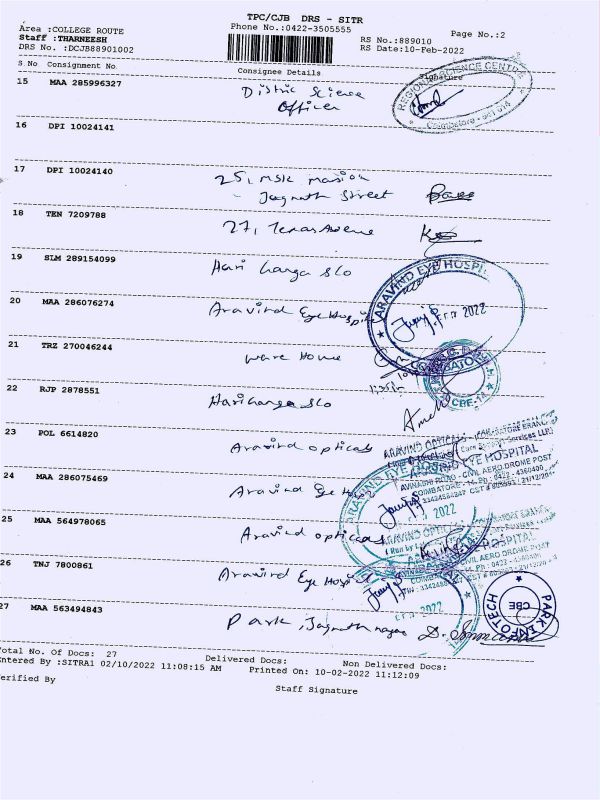 TPC/CJB DRS - SITR
Area :COLLEGE ROUTE
Phone No.:0422-3505555
Staff : THARNEESH
RS No.:889010 Page No.:2
DRS No. :DCJB88901002
RS Date:10-Feb-2022
S No Consignment No Consignee Details Signature
15 MAA 285996327 Distric Science
Officer
REGIONAL SCIENCE CENTRE
Coimbatore - 641 014
16 DPI 10024141
17 DPI 10024140 25, MSK
Street
18 TEN 7209788 27,
19 SLM 289154099 Hari Ganga S/o
ARAVIND EYE HOSPI
20 MAA 286076274 Aravind Eye Hospital
2022
21 TRZ 270046244 ware House
CBE-14
22 RJP 2878551 Hari Ganga S/o
23 POL 6614820 Aravind opticals
ARAVIND OPTICALS
24 MAA 286075469 Aravind Eye
ARAVIND EYE HOSPITAL
AVINASHI ROAD - CIVIL AERO DROME POST
COIMBATORE - 14. PD : 0422 - 4360400
2022
25 MAA 564978065 Aravind opticals
ARAVIND OPTICALS
EYE HOSPITAL
26 TNJ 7800861 Aravind Eye Hospital
2022
27 MAA 563494843 Park, Jagnath nagar
PARK INFOTECH
CBE
Total No. Of Docs: 27 Delivered Docs: Non Delivered Docs:
Entered By :SITRA1 02/10/2022 11:08:15 AM Printed On: 10-02-2022 11:12:09
Verified By
Staff Signature